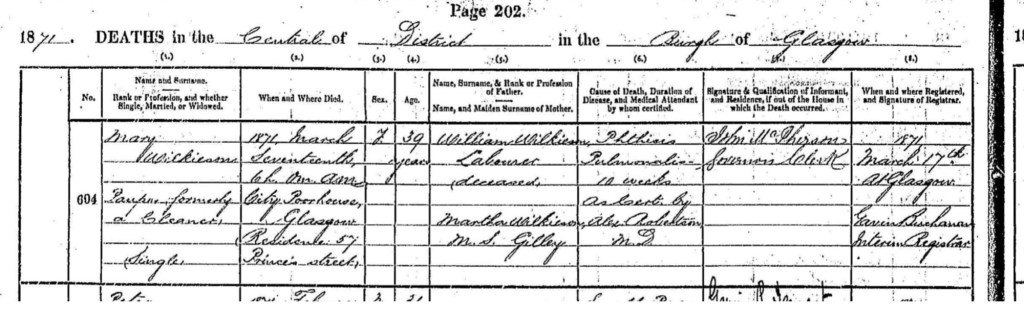 Page 202.
1871. DEATHS in the Central of District in the Burgh of Glasgow
(1.) (2.) (3.) (4.) (5.) (6.) (7.) (8.)
No.
Name and Surname.
Rank or Profession, and whether
Single, Married, or Widowed.
When and Where Died.
Sex.
Age.
Name, Surname, & Rank or Profession
of Father.
Name, and Maiden Surname of Mother.
Cause of Death, Duration of
Disease, and Medical Attendant
by whom certified.
Signature & Qualification of Informant,
and Residence, if out of the House in
which the Death occurred.
When and where Registered,
and Signature of Registrar.
604
Mary
Wilkieson
Pauper, formerly
a Cleaner,
Single
1871, March
Seventeenth,
City Poorhouse,
Glasgow
Residence 57
Princes street,
F.
39
years
William Wilkieson,
Labourer
deceased,
Martha Wilkieson,
M.S. Gilley
Phthisis
Pulmonalis
10 weeks
As Cert. by
Alex Robertson,
M.D.
John McPherson
Governors Clerk
1871
March 17th
At Glasgow
Gavin Buchanan
Interim Registrar